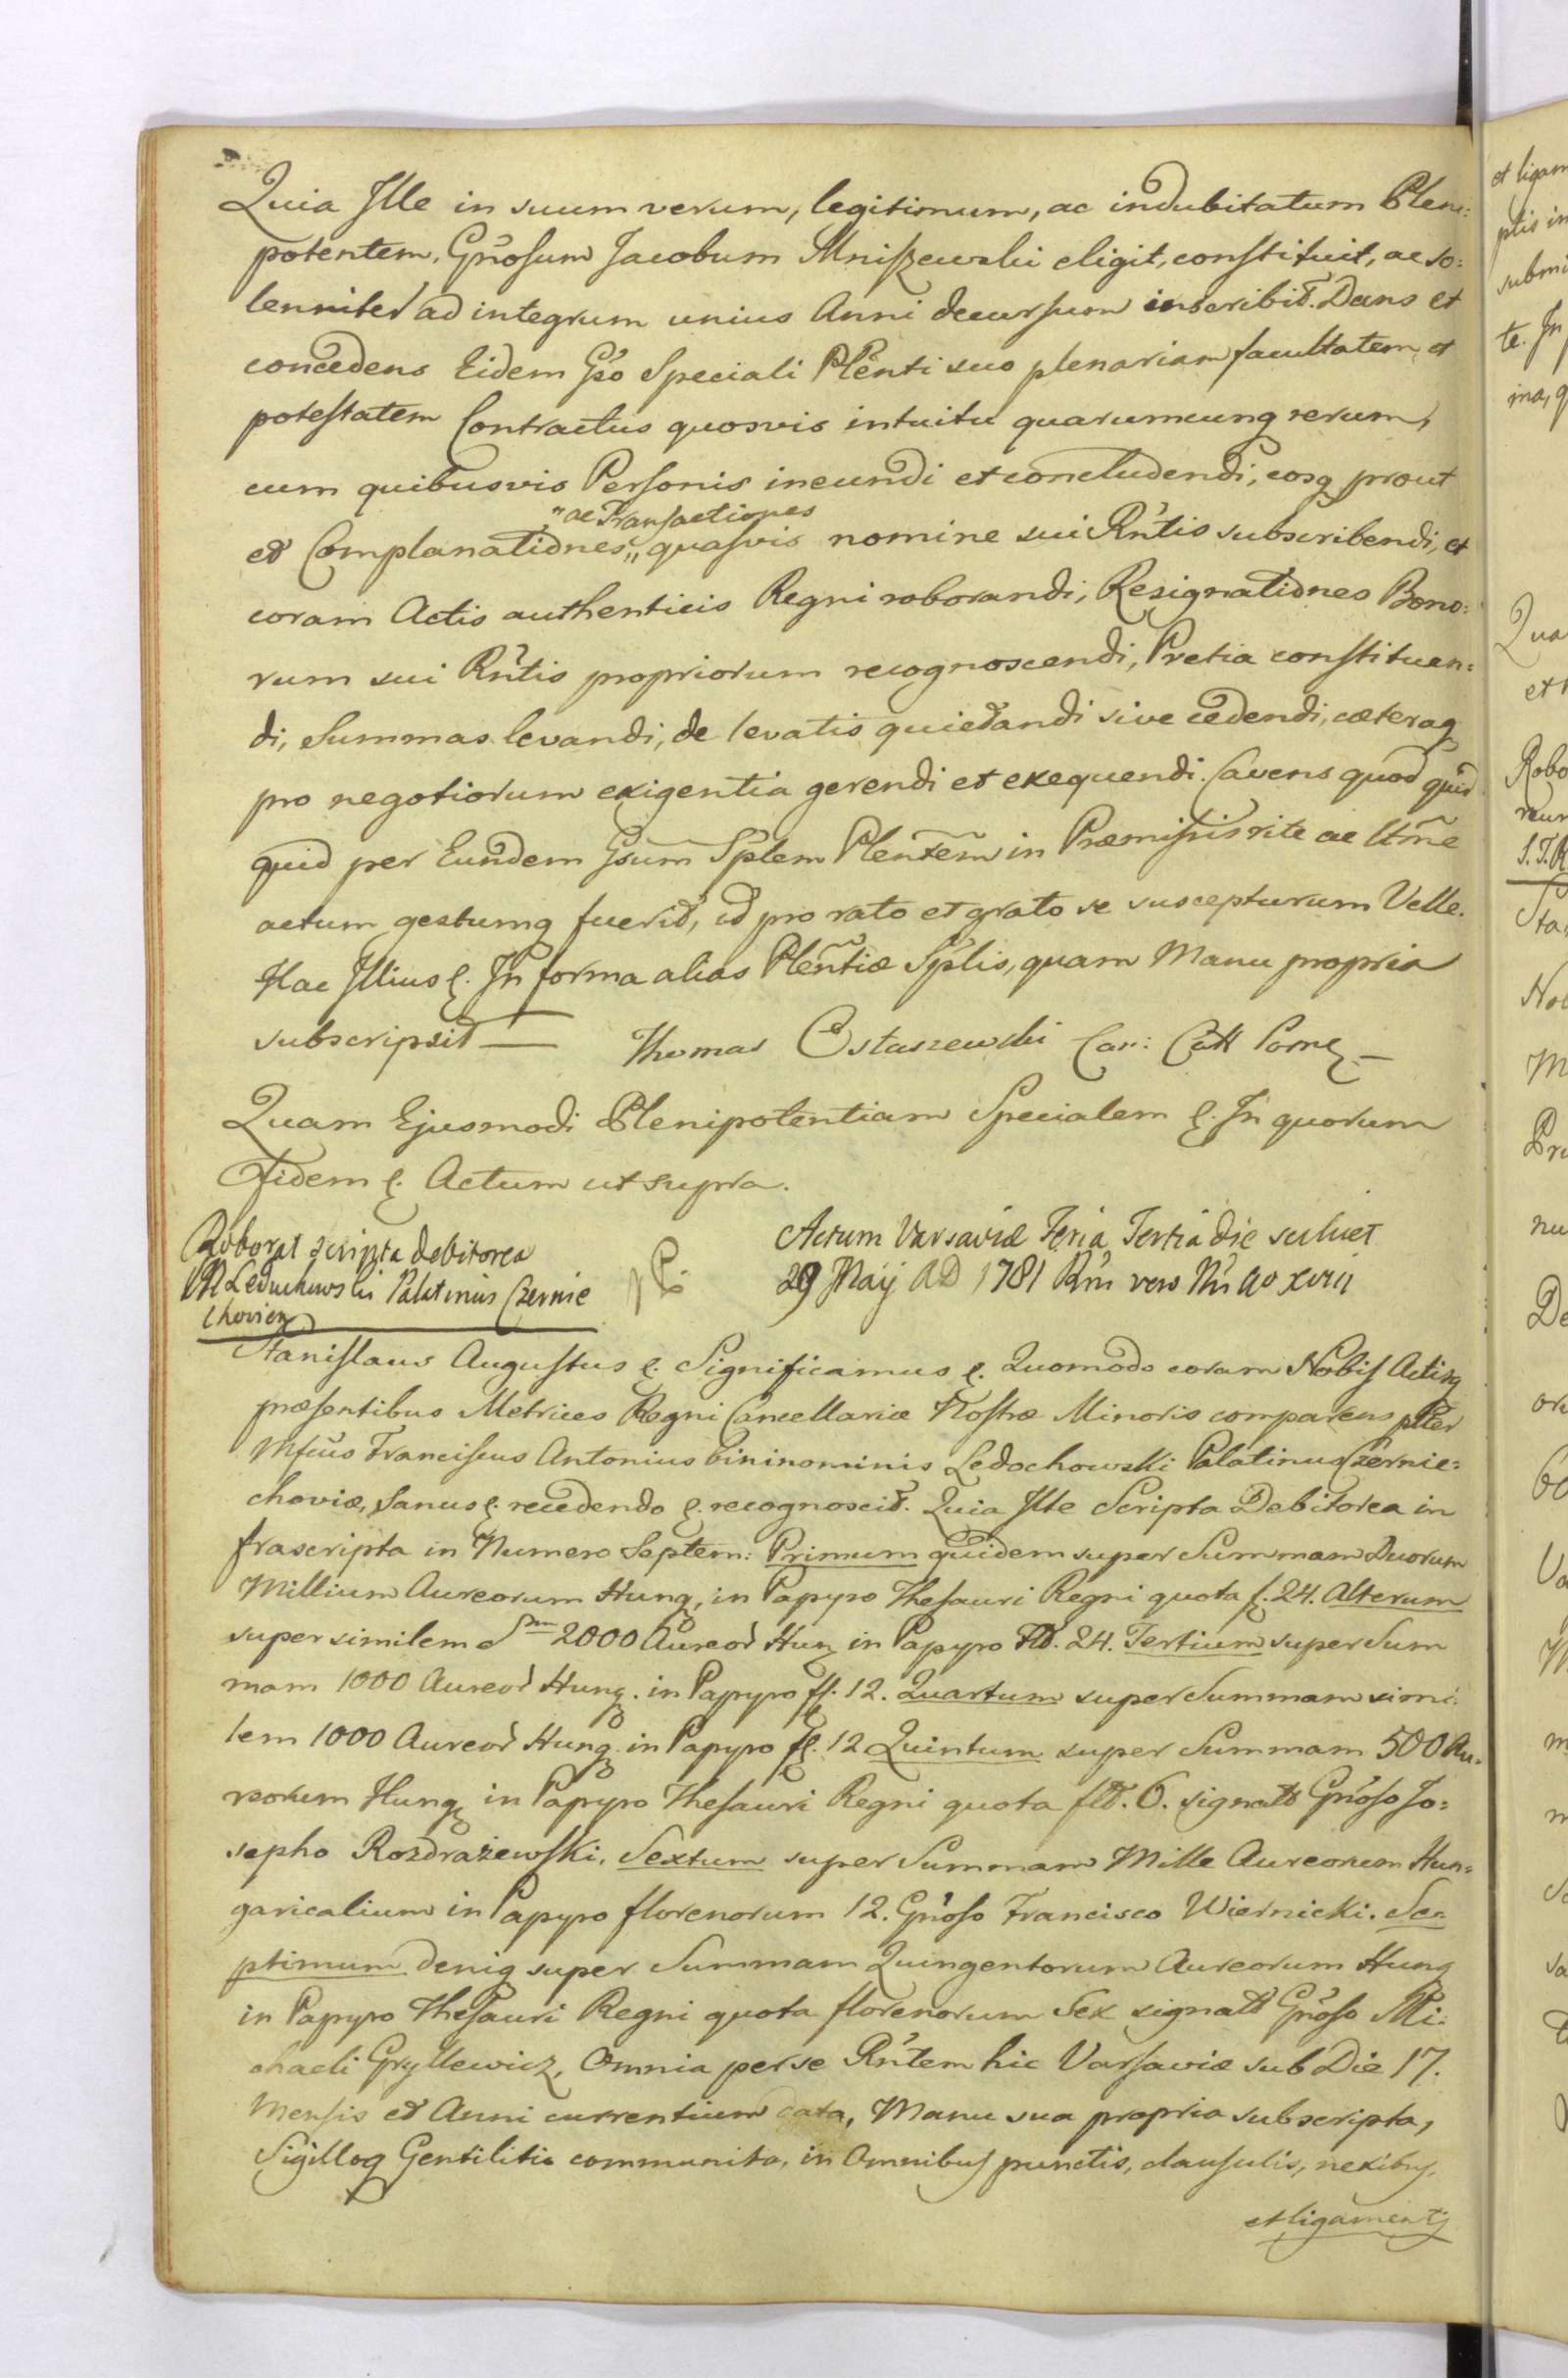 Quia Ille in suum verum, legitimum, ac indubitatum Pleni:
potentem, Gnosum Jacobum Mniszewski eligit, constituit, ac so:
lenniter ad integrum unius Anni decursum inscribit. Dans et
concedens Eidem Gso Speciali Plenti suo plenariam facultatem et
potestatem Contractus quosvis intuitu quarumcunq rerum,
cum quibusvis Personis ineundi et concludendi, eosq prout
"ac Transactiones
et Complanationes,, quasvis nomine sui Rntis subscribendi, et
coram Actis authenticis Regni roborandi, Resignationes Bono:
rum sui Rntis propriorum recognoscendi, Pretia constituen:
di, Summas levandi, de levatis quietandi sive cedendi, cæteraq
pro negotiorum exigentia gerendi et exequendi. Cavens quod quid
quid per Eundem Gsum Splem Plentem in Præmissis rite ac ltme
actum gestumq fuerit, id pro rato et grato se suscepturum Velle.
Hac Illius &. In forma alias Plentiæ Splis, quam Manu propria
subscripsit — Thomas Ostaszewski Can: Cath
Quam Ejusmodi Plenipotentiam Specialem &. In quorum
Fidem &. Actum ut supra.
Roborat scripta debitorea
M Leduchowski Palatinus Czernie
chovien
Actum Varsaviæ Feria Tertia die scilicet
29 Maij AD 1781 Rni vero Nri ao xvii
Stanislaus Augustus &. Significamus &. Quomodo coram Nobis Actisq
præsentibus Metrices Regni Cancellariæ Nostræ Minoris comparens plter
Mfcus Franciscus Antonius binınominis Ledochowski Palatinus Czernie:
choviæ, Sanus &. recedendo &. recognoscit. Quia Ille Scripta Debitorea in
frascripta in Numero Septem: Primum quidem super Summam Duorum
Millium Aureorum Hung, in Papyro Thesauri Regni quota f. 24. Alterum
super similem Sm 2000 Aureor Hung in Papyro fl. 24. Tertium super Sum
mam 1000 Aureor Hung. in Papyro fl. 12. Quartum super Summam simi:
lem 1000 Aureor Hung. in Papyro fl. 12 Quintum super Summam 500 Au:
reorum Hung in Papyro Thesauri Regni quota fl. 6. signato Gnoso Jo:
sepho Rozdrażewski. Sextum super Summam Mille Aureorum Hun:
garicalium in Papyro florenorum 12. Gnoso Francisco Wiernicki. Se:
ptimum deniq super Summam Quingentorum Aureorum Hung
in Papyro Thesauri Regni quota florenorum Sex signato Gnoso Mi:
chaeli Gryllewicz, Omnia per se Rntem hic Varsaviæ sub Die 17.
Mensis et Anni currentium data, Manu sua propria subscripta,
Sigilloq Gentilitio communita, in Omnibus punctis, clausulis, nexibus,
et ligamentis